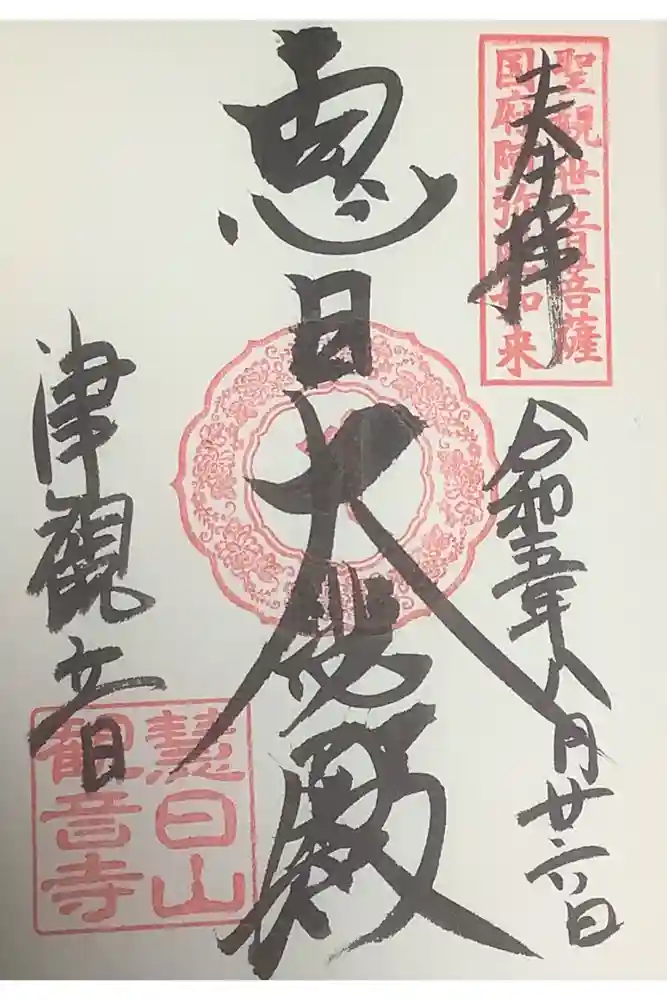 聖観世音菩薩
国府阿弥陀如来
奉拝
令和五年八月廿六日
恵日大悲殿
津觀音
慧日山
観音寺